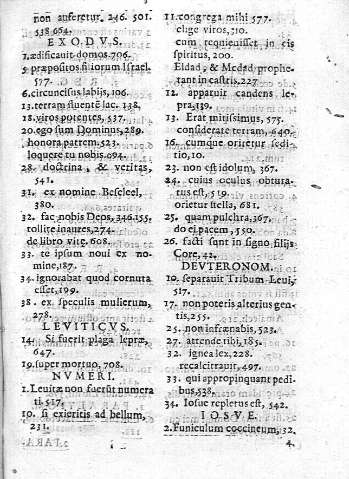 non auferetur, 246. 501.
538 664.
EXODVS.
1. ædificauit domos. 706.
5 præpositos filiorum Israel.
577.
6. circuncisus labijs, 106.
13. terram fluentē lac. 138,
18. viros potentes, 537.
20. ego sum Dominus, 289.
honora patrem. 523.
loquere tu nobis. 694.
28. doctrina, & veritas,
541.
31. ex nomine Beseleel,
380.
32. fac nobis Deos, 346.155.
tollite inaures, 274.
de libro vitę. 608.
33. te ipsum noui ex no-
mine, 187.
34. ignorabat quod cornuta
esset, 199.
38. ex speculis mulierum,
278.
LEVITICVS.
14. Si fuerit plaga lepræ,
647.
19. super mortuo, 708.
NVMERI.
1. Leuitæ non fuerūt numera
ti. 517.
10. si exieritis ad bellum,
231.
11. congrega mihi 577.
elige viros, 310.
cum requieuisset in eis
spiritus, 200.
Eldad, & Medad prophe-
tant in castris. 227
12. apparuit candens le-
pra, 139.
13. Erat mitissimus, 575.
considerate terram, 640.
16. cumque oriretur sedi-
tio, 10.
23. non est idolum, 367.
24. cuius oculus obtura-
tus est, 519.
orietur stella, 681.
25. quam pulchra, 367.
do ei pacem, 550.
26. facti sunt in signo filijs
Core, 42.
DEVTERONOM.
10. separauit Tribum Leui,
517.
17. non poteris alterius gen-
tis, 255.
25. non infrænabis, 523.
27. attende tibi, 185.
32. ignea lex, 228.
recalcitrauit, 497.
33. qui appropinquant pedi-
bus, 538.
34. Iosue repletus est, 542.
IOSVE.
2. Funiculum coccineum, 32.
4.